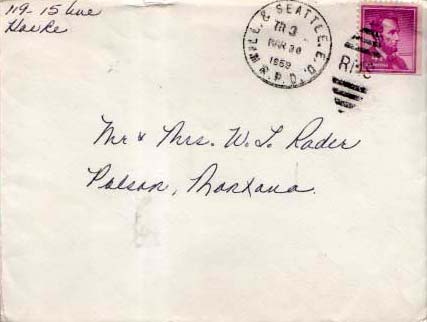 119-15 Ave
Havre
WILL. & SEATTLE. E.D.
TR 3
MAR 30
1959
R.P.O.
Mr & Mrs. W. L. Rader
Polson, Montana.